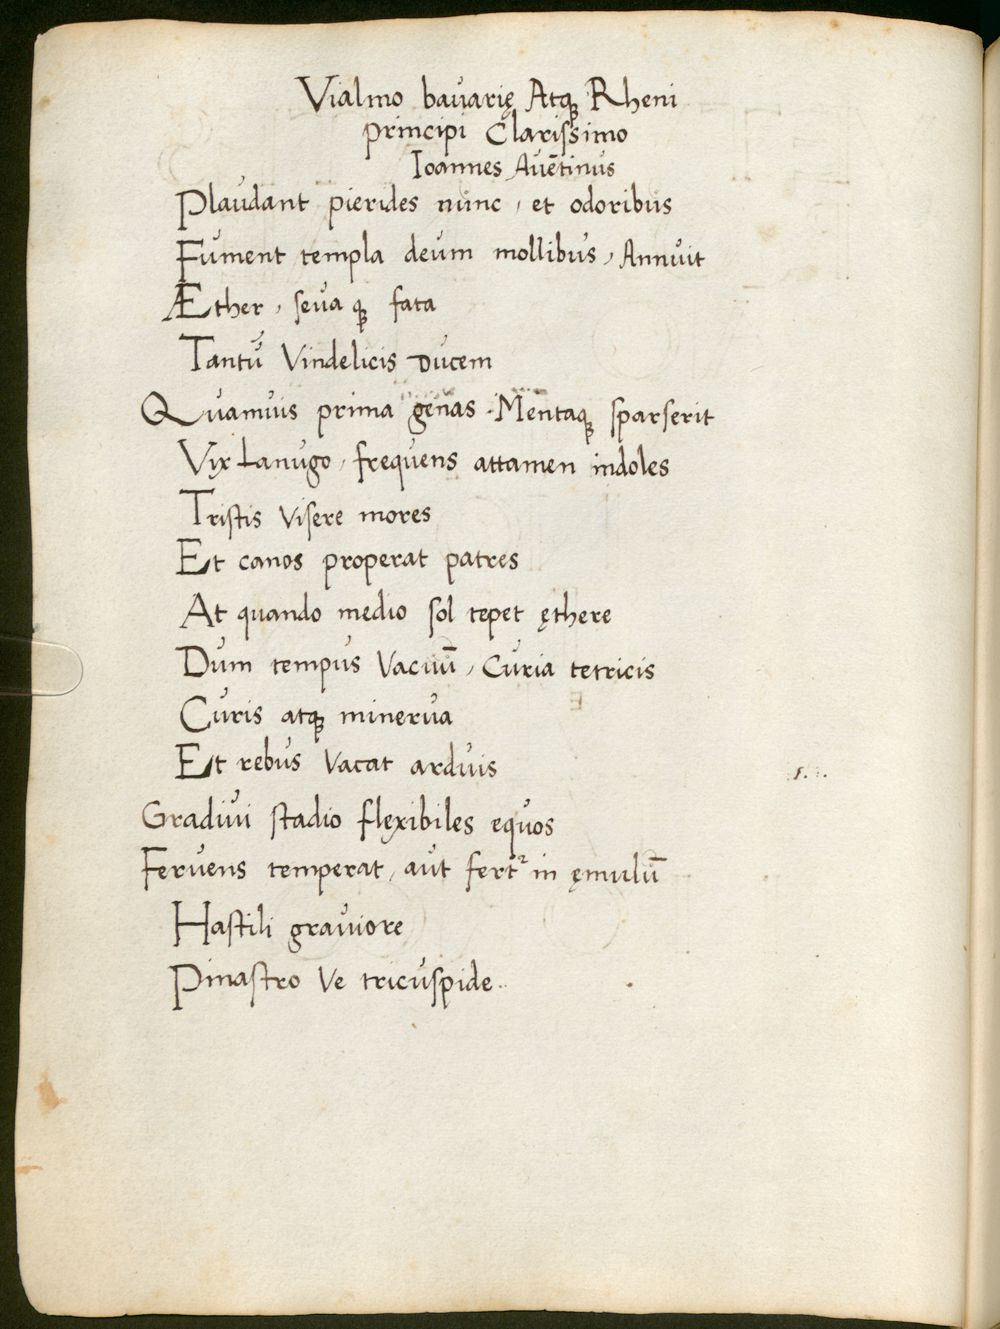 Vialmo bauarię Atq; Rheni
principi Clarissimo
Ioannes Auētinus
Plaudant pierides nunc, et odoribus
Fument templa deum mollibus, Annuit
Æther, seua q; fata
Tantū Vindelicis Ducem
Quamuis prima genas Mentaq; sparserit
Vix Lanugo, frequens attamen indoles
Tristis Visere mores
Et canos properat patres
At quando medio sol tepet ęthere
Dum tempus Vacuū, Curia tetricis
Curis atq; minerua
Et rebus Vacat arduis
Gradiui stadio flexibiles equos
Feruens temperat, aut fert² in ęmulū
Hastili grauiore
Pinastro Ve tricuspide..